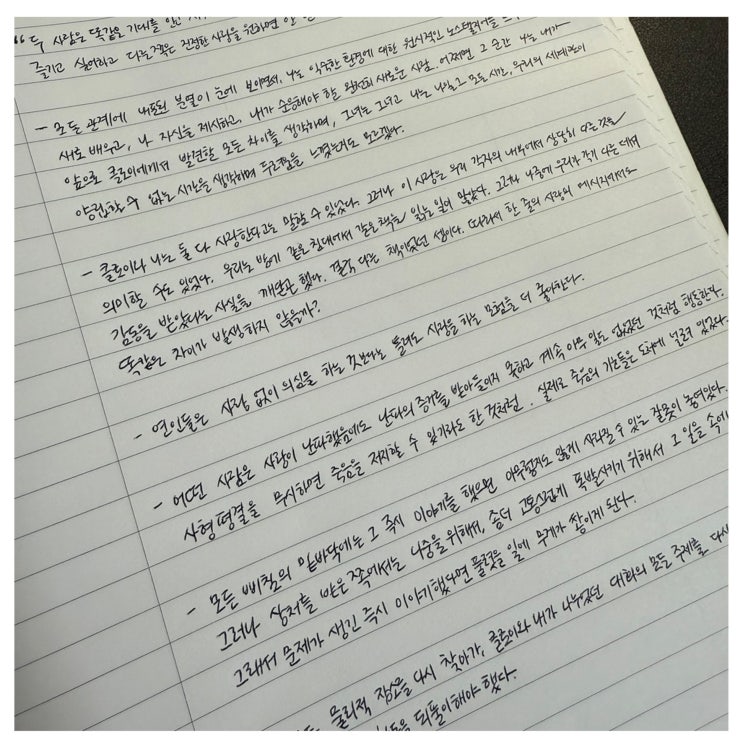 “두 사람은 똑같은 기대를 안고
즐기고 싶어하고 다른 쪽은 진정한 사랑을 원하면
- 모든 관계에 내포된 분열이 눈에 보이면서, 나는 익숙한 환경에 대한 원시적인 노스탤지어를
새로 배우고, 나 자신을 제시하고, 내가 순응해야 할 완전히 새로운 사람. 어쩌면 그 순간 나는 내가
앞으로 클로이에게서 발견할 모든 차이를 생각하며, 그녀는 그녀고 나는 나일 그 모든 시간, 우리의 세계관이
양립할 수 없는 시간을 생각하며 두려움을 느꼈는지도 모르겠다.
- 클로이나 나는 둘 다 사랑한다고는 말할 수 있었다. 그러나 이 사랑은 우리 각자의 내부에서 상당히 다른 것을
의미할 수도 있었다. 우리는 밤에 같은 침대에서 같은 책을 읽는 일이 많았다. 그러나 나중에 우리가 각기 다른 데서
감동을 받았다는 사실을 깨닫곤 했다. 결국 다른 책이었던 셈이다. 따라서 한 줄의 사랑의 메시지에서도
똑같은 차이가 발생하지 않을까?
- 연인들은 사랑 없이 의심을 하는 것보다는 틀려도 사랑을 하는 모험을 더 좋아한다.
- 어떤 사람은 사랑이 난파했음에도 난파의 증거를 받아들이지 못하고 계속 아무 일도 없었던 것처럼 행동한다.
사형 평결을 무시하면 죽음을 저지할 수 있기라도 한 것처럼. 실제로 죽음의 기호들은 도처에 널려 있었다.
- 모든 삐침의 밑바닥에는 그 즉시 이야기를 했으면 아무렇지도 않게 사라질 수 있는 잘못이 놓여있다.
그러나 상처를 받은 쪽에서는 나중을 위해서, 좀더 고통스럽게 폭발시키기 위해서 그 일을 속에
그래서 문제가 생긴 즉시 이야기했다면 풀렸을 일에 무게가 쌓이게 된다.
물리적 장소를 다시 찾아가, 클로이와 내가 나누었던 대화의 모든 주제를 다시
되풀이해야 했다.